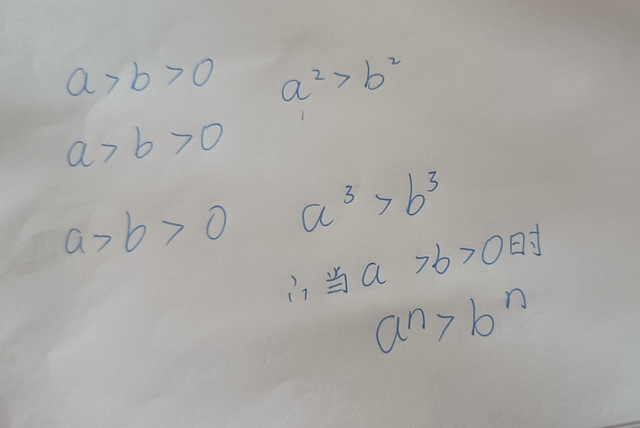 a>b>0 a²>b²
a>b>0
a>b>0 a³>b³
∴当a>b>0时
aⁿ>bⁿ